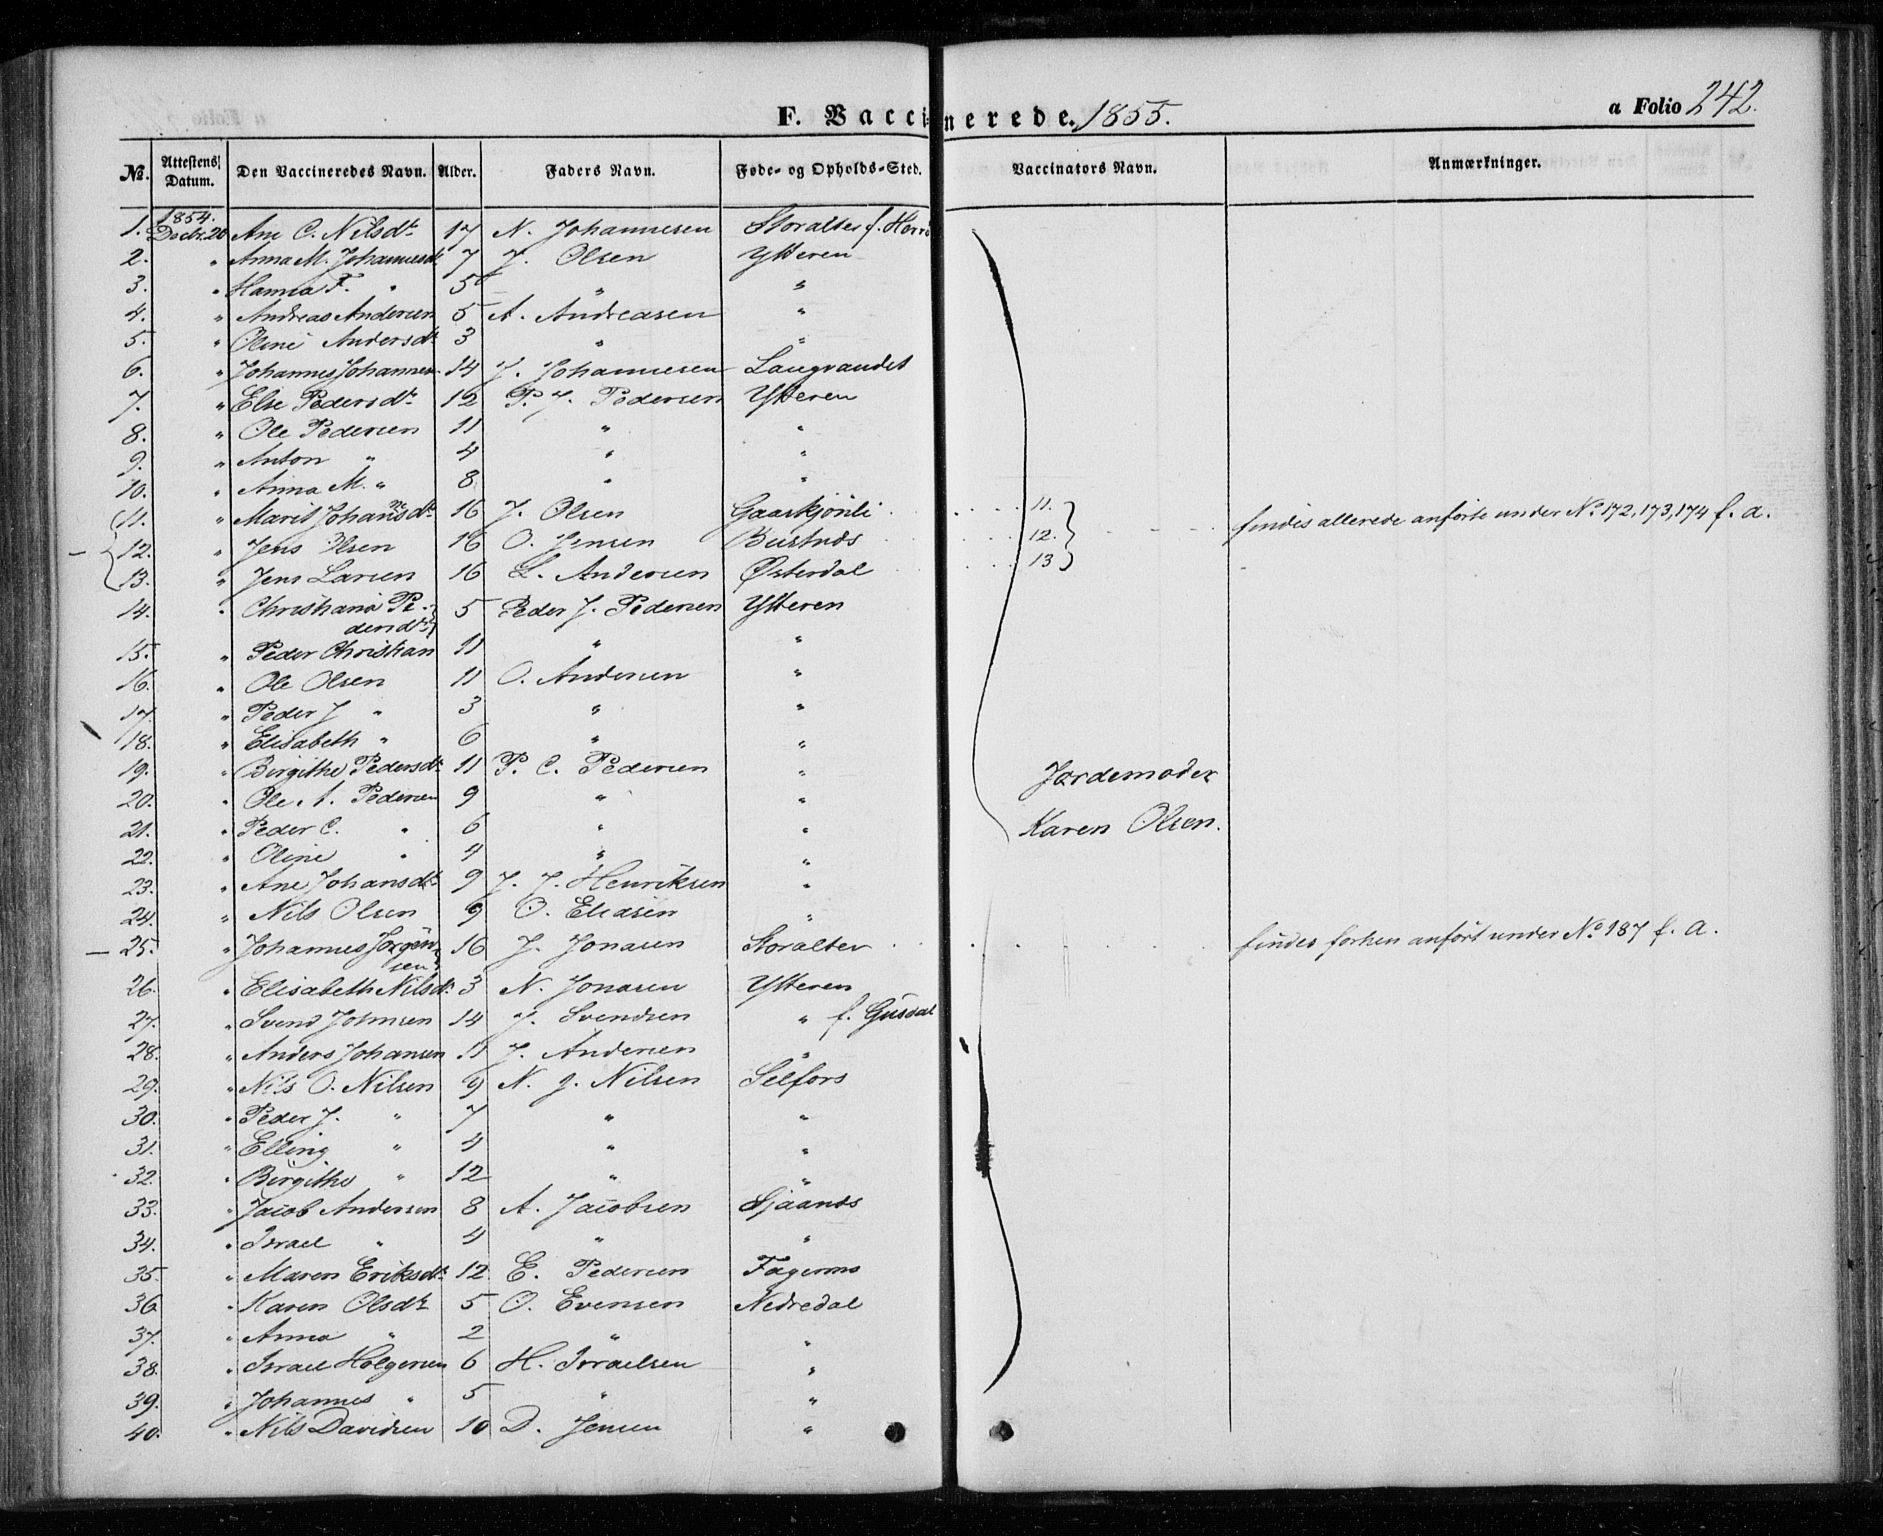 F. Vaccinerede. 1855.
a Folio 242.
No. Attestens Datum. Den Vaccineredes Navn. Alder. Faders Navn. Føde- og Opholds-Sted. Vaccinators Navn. Anmærkninger.
1854.
1. Decbr. 20 Ane C. Nilsdtr 17 N. Johannesen Storalter f.
2. " Anna M. Johannesdr 7 J. Olsen Ytteren
3. " Hanna F. " 5 " "
4. " Andreas Andersen 5 A. Andreasen "
5. " Oline Andersdtr 3 " "
6. " Johannes Johannesen 14 J. Johannesen Langvandet
7. " Else Pedersdtr 12 P. J. Pedersen Ytteren
8. " Ole Pedersen 11 " "
9. " Anton " 4 " "
10. " Anna M. " 8 " "
11. " Marit Johansdtr 16 J. Olsen Gaaskjønli 11.
findes allerede anførte under No 172, 173, 174 f. a.
12. " Jens Olsen 16 O. Jensen Bustnæs 12.
13. " Jens Larsen 16 L. Andersen Østerdal 13
14. " Christiana Pe-
dersdtr 5 Peder J. Pedersen Ytteren
15. " Peder Christian 11 " "
16. " Ole Olsen 11 O. Andersen "
17. " Peder J " 3 " "
18. " Elisabeth " 6 " "
19. " Birgithe Pedersdtr 11 P. C. Pedersen "
Jordemoder
20. " Ole A. Pedersen 9 " "
Karen Olsen.
21. " Peder C. " 6 " "
22. " Oline " 4 " "
23. " Ane Johansdtr 9 J. J. Henriksen "
24. " Nils Olsen 9 O. Eliasen "
25. " Johannes Jørgen-
sen 16 J. Jonasen Storalter findes forhen anført under No 187 f. a.
26. " Elisabeth Nilsdr. 3 N. Jonasen Ytteren
27. " Svend Johnsen 14 J. Svendsen " f. Gusdal
28. " Anders Johansen 11 J. Andersen "
29. " Nils O. Nilsen 9 N. J. Nilsen Selfors
30. " Peder J. " 7 " "
31. " Elling " 4 " "
32. " Birgithe " 12 " "
33. " Jacob Andersen 8 A. Jacobsen Sjaanæs
34. " Israel " 4 " "
35. " Maren Eriksdtr 12 E. Pedersen Fagermo
36 " Karen Olsdtr 5 O. Evensen Nedredal
37. " Anna " 2 " "
38. " Israel Holgersen 6 H. Israelsen "
39. " Johannes " 5 " "
40. " Nils Davidsen 10 D. Jensen "